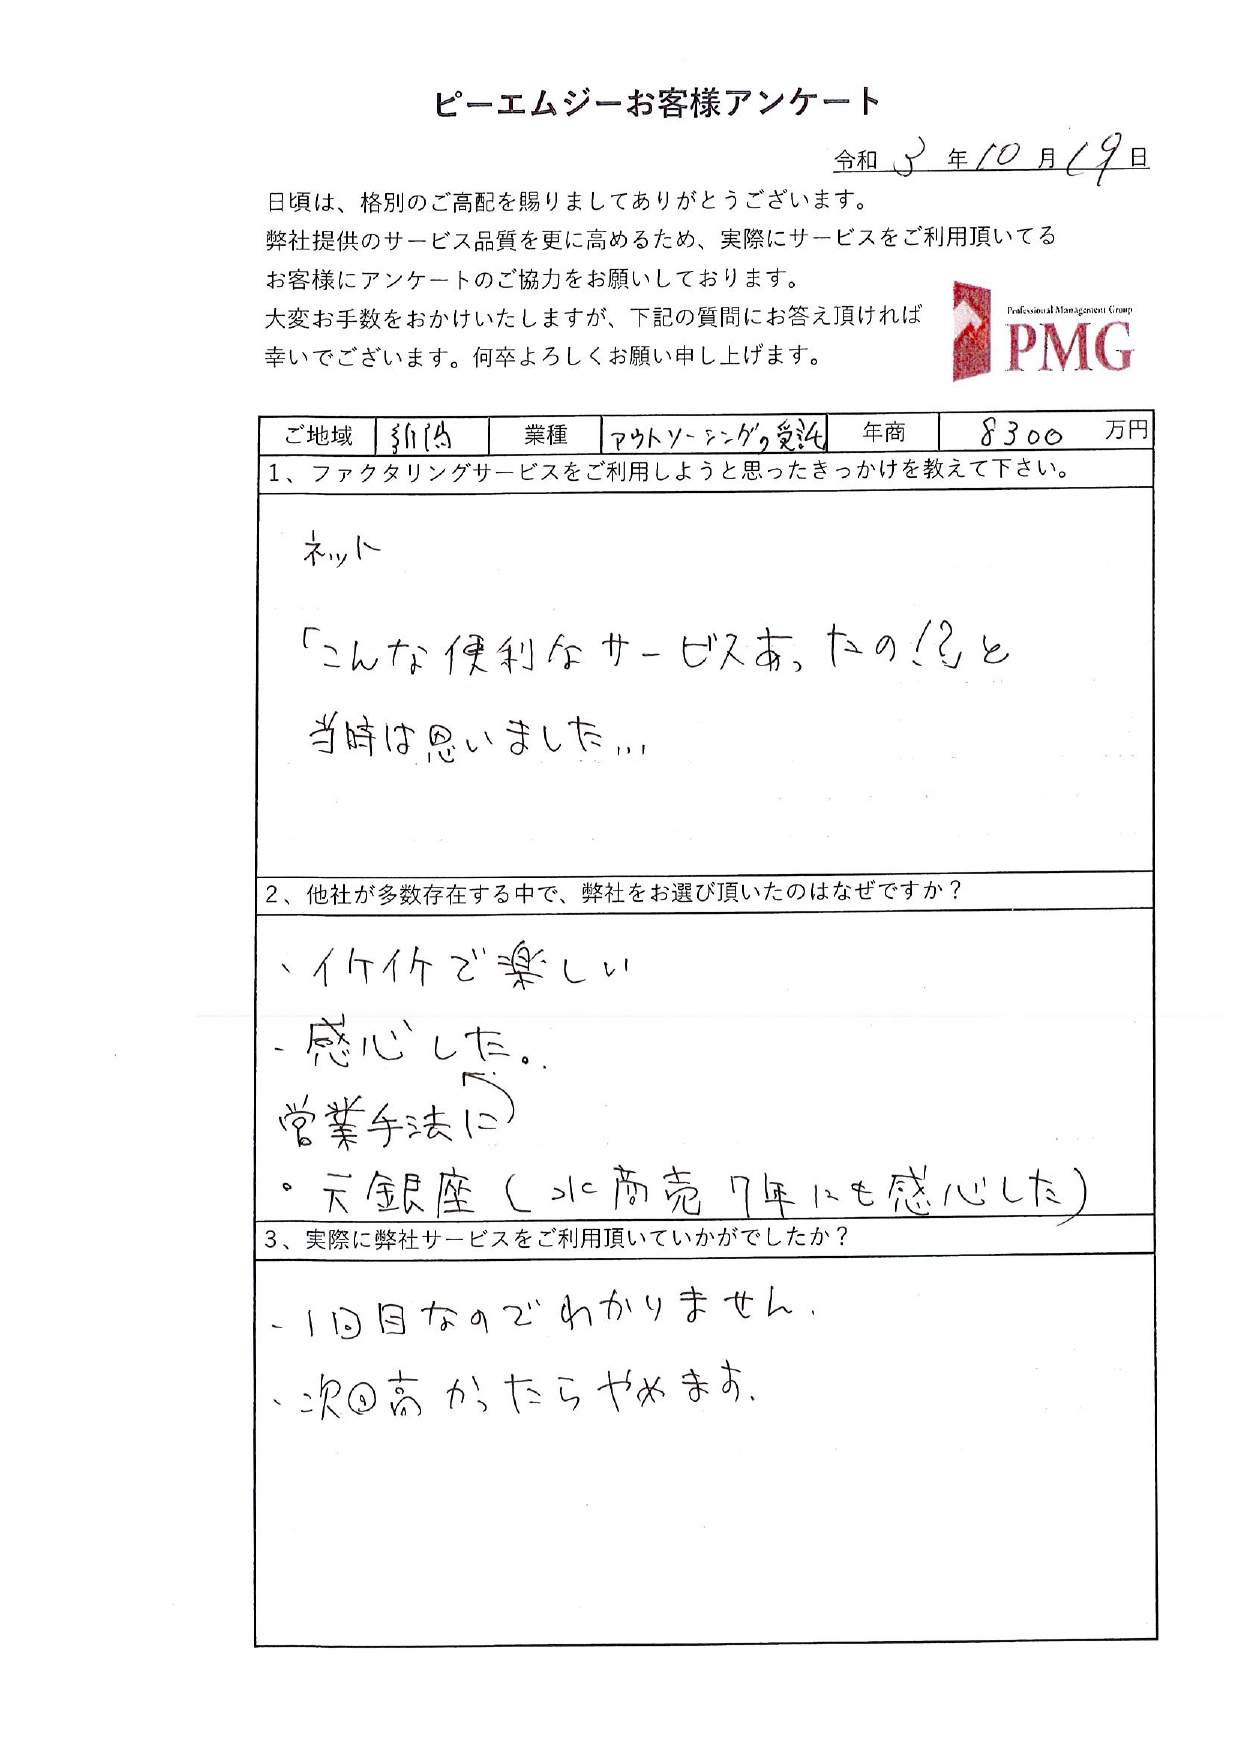 ピーエムジーお客様アンケート
令和 3 年 10 月 19 日
日頃は、格別のご高配を賜りましてありがとうございます。
弊社提供のサービス品質を更に高めるため、実際にサービスをご利用頂いてる
お客様にアンケートのご協力をお願いしております。
大変お手数をおかけいたしますが、下記の質問にお答え頂ければ
幸いでございます。何卒よろしくお願い申し上げます。
Professional Management Group
PMG
ご地域 新潟 業種 アウトソーシングの受託 年商 8300 万円
1、ファクタリングサービスをご利用しようと思ったきっかけを教えて下さい。
ネット
「こんな便利なサービスあったの!?」と
当時は思いました...
2、他社が多数存在する中で、弊社をお選び頂いたのはなぜですか？
、イケイケで楽しい
- 感心した。
営業手法に
・元銀座(水商売7年にも感心した)
3、実際に弊社サービスをご利用頂いていかがでしたか？
- 1回目なのでわかりません.
、次回高かったらやめます.